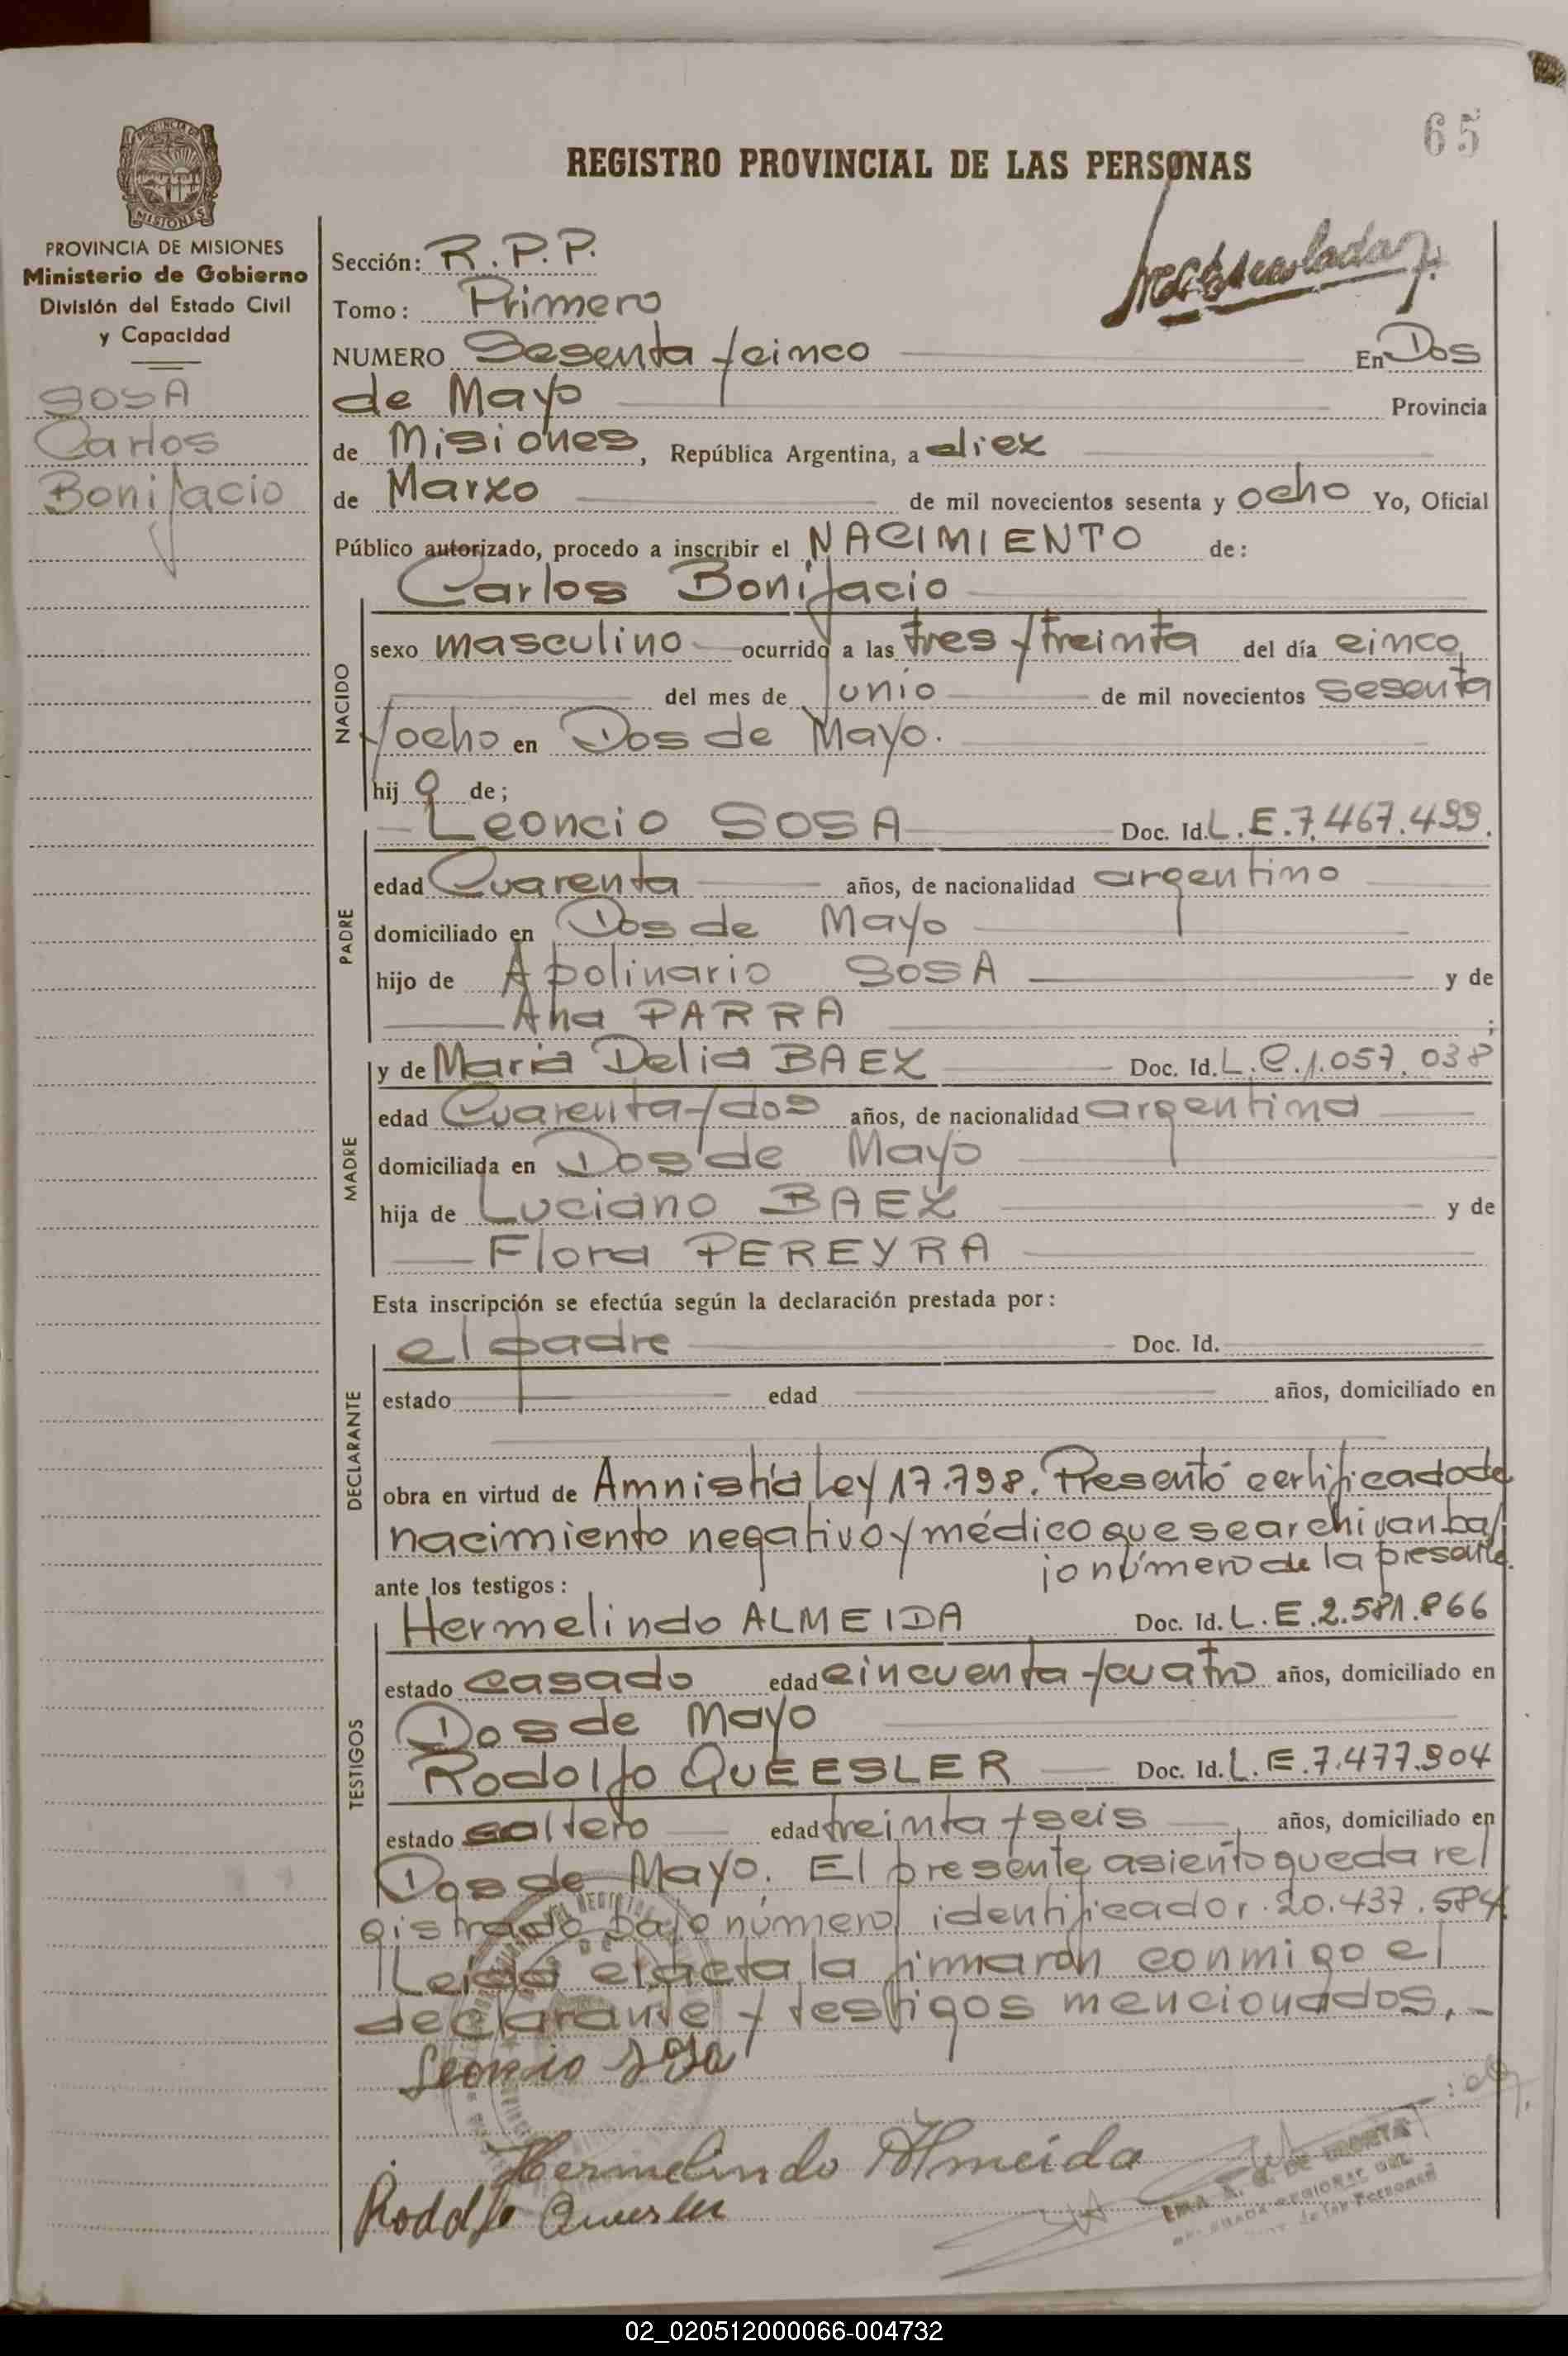 65
REGISTRO PROVINCIAL DE LAS PERSONAS
PROVINCIA DE MISIONES
Ministerio de Gobierno
División del Estado Civil
y Capacidad
SOSA
Carlos
Bonifacio
Sección: R.P.P.
Tomo: Primero
NUMERO Sesenta y cinco En Dos
de Mayo Provincia
de Misiones, República Argentina, a diez
de Marzo de mil novecientos sesenta y ocho Yo, Oficial
Público autorizado, procedo a inscribir el NACIMIENTO de:
Carlos Bonifacio
NACIDO
sexo masculino ocurrido a las tres y treinta del día cinco
del mes de Junio de mil novecientos sesenta
y ocho en Dos de Mayo.
hij o de;
PADRE
Leoncio SOSA Doc. Id. L.E.7.467.499.
edad Cuarenta años, de nacionalidad argentino
domiciliado en Dos de Mayo
hijo de Apolinario SOSA y de
Ana PARRA ;
MADRE
y de Maria Delia BAEZ Doc. Id. L.C.1.057.038
edad Cuarenta y dos años, de nacionalidad argentina
domiciliada en Dos de Mayo
hija de Luciano BAEZ y de
Flora PEREYRA
Esta inscripción se efectúa según la declaración prestada por:
DECLARANTE
el padre Doc. Id.
estado edad años, domiciliado en
obra en virtud de Amnistía Ley 17.798. Presentó certificado de
nacimiento negativo y médico que se archivan ba/
jo número de la presente.
ante los testigos:
TESTIGOS
Hermelindo ALMEIDA Doc. Id. L.E.2.581.866
estado casado edad cincuenta y cuatro años, domiciliado en
Dos de Mayo
Rodolfo QUEESLER Doc. Id. L.E.7.477.904
estado soltero edad treinta y seis años, domiciliado en
Dos de Mayo. El presente asiento queda re/
gistrado bajo número identificador 20.437.584
Leida el acta la firmaron conmigo el
declarante y testigos mencionados.-
Leoncio Sosa
Hermelindo Almeida
Rodolfo
02_020512000066-004732